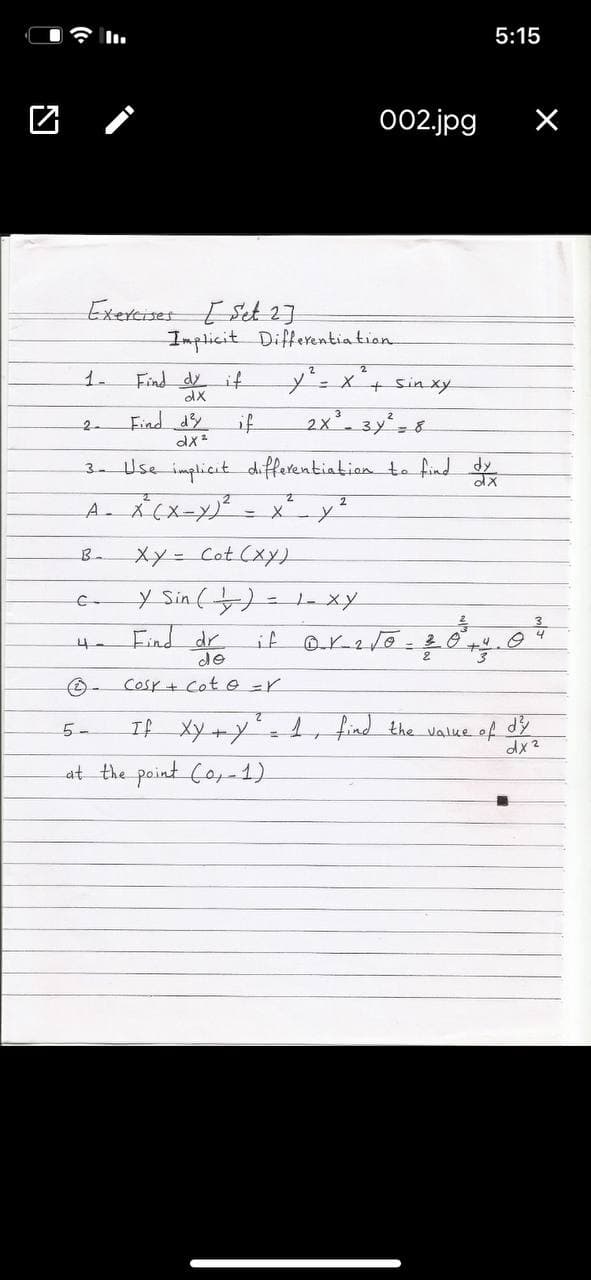 5:15
002.jpg
Exercises [Set 2]
Implicit Differentiation
1- Find dy/dx if y² = x² + sin xy
2- Find d²y/dx² if 2x³ - 3y² = 8
3- Use implicit differentiation to find dy/dx
A- x²(x-y)² = x² - y²
B- xy = Cot (xy)
C- y Sin(1/y) = 1- xy
4- Find dr/dθ if ① r-2√θ = 3/2 θ^2/3 + 4/3 . θ^3/4
②- Cosr + Cot θ = r
5- If xy + y² = 1, find the value of d²y/dx²
at the point (0,-1)